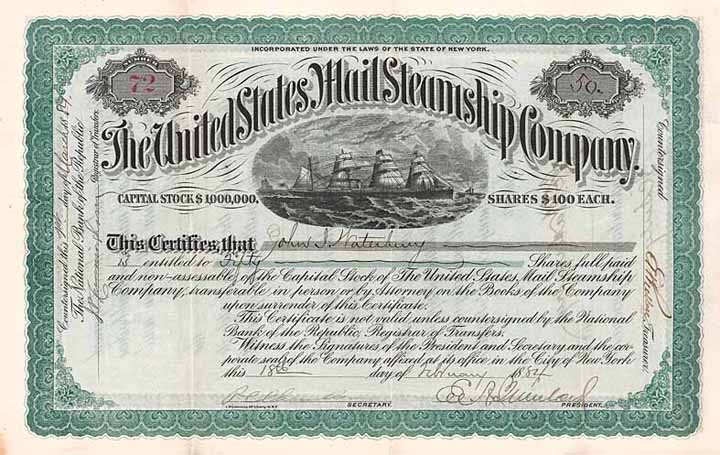 INCORPORATED UNDER THE LAWS OF THE STATE OF NEW YORK.
NUMBER
72
50.
The United States Mail Steamship Company.
CAPITAL STOCK $ 1,000,000.
SHARES $ 100 EACH.
This Certifies, that John I. Waterbury
is entitled to Fifty Shares full paid
and non-assessable, of the Capital Stock of The United States, Mail Steamship
Company, transferable in person, or by Attorney on the Books of the Company
upon surrender of this Certificate.
This Certificate is not valid unless countersigned by the National
Bank of the Republic, Registrar of Transfers.
Witness the Signatures of the President and Secretary and the cor-
porate seal of the Company affixed at its office in the City of New York
this 18th day of February 1884
SECRETARY.
PRESIDENT.
Countersigned this day of March 1884
The National Bank of the Republic
Registrar of Transfers
Countersigned
Treasurer